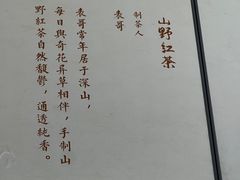 山野紅茶
制茶人
表哥
表哥常年居于深山，
每日與奇花異草相伴，手制山
野紅茶自然馥鬱，通透純香。